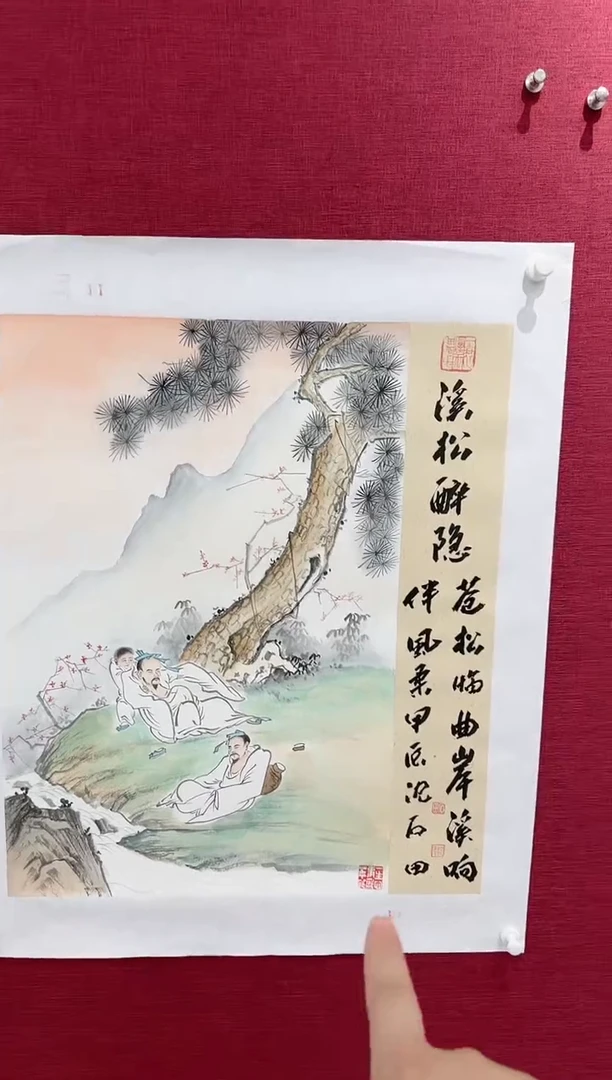 溪松醉隐
苍松临曲岸溪响
伴風柔甲辰沈石田